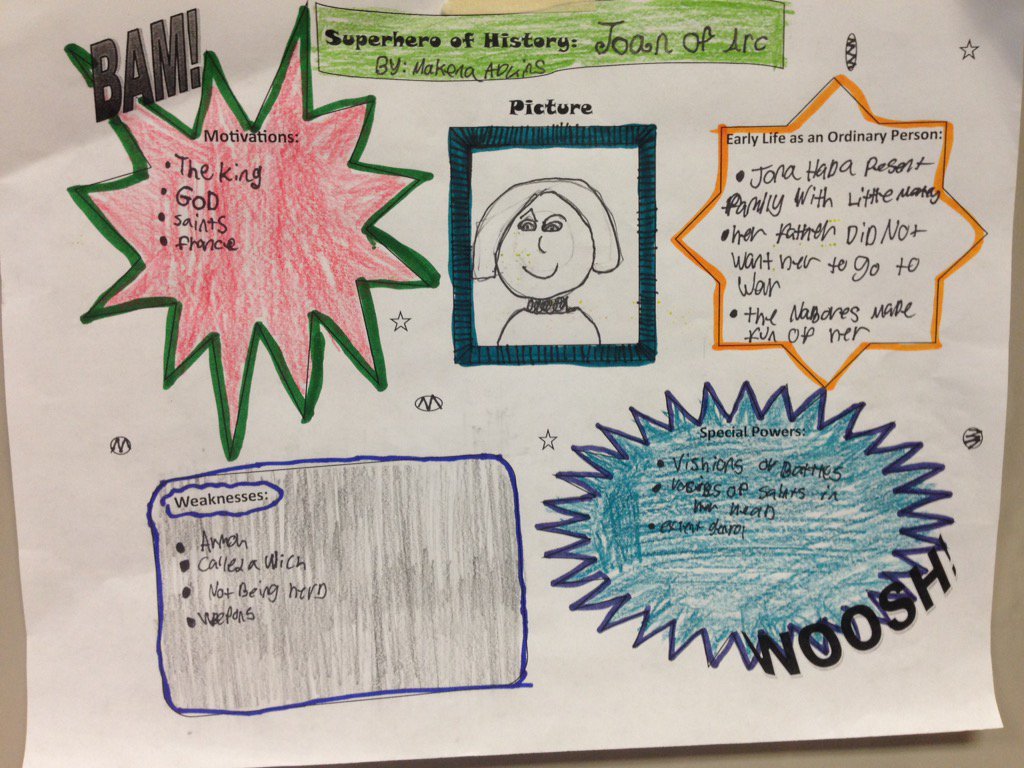 BAM!
Superhero of History: Joan of Arc
BY: Makena Adkins
Picture
Motivations:
• The king
• GOD
• saints
• france
Early Life as an Ordinary Person:
• Jona HaDa Pesent
family With Little
• her father DiD Not
want her to go to
War
• the Nabores made
fun of her
Weaknesses:
•
• Called a Wich
• Not Being herD
• Weapons
Special Powers:
• Vishions of Battles
• of saints in
her head
•
WOOSH!